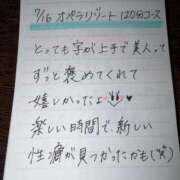 7/16 オペラリゾート 120分コース
とっても字が上手で美人って
ずっと褒めてくれて
嬉しかったよ
楽しい時間で、新しい
性癖が見つかったかも(笑)